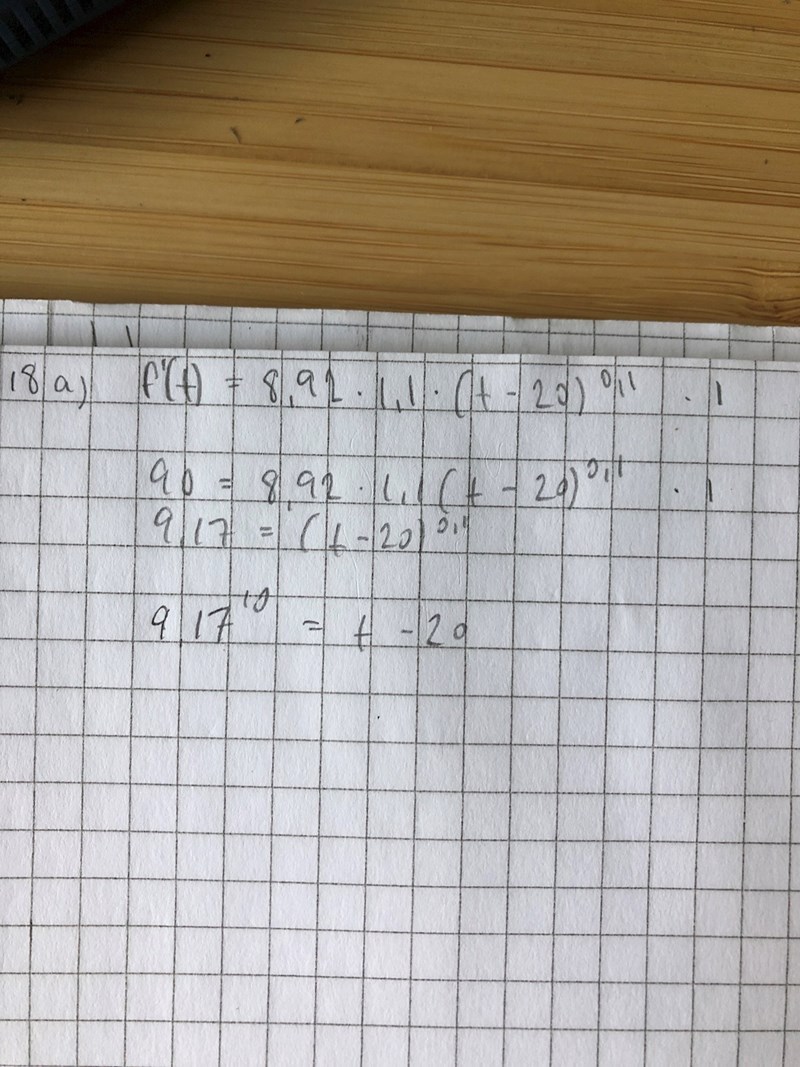 18 a) f'(t) = 8,92 · 1,1 · (t - 20)^0,1 · 1
90 = 8,92 · 1,1 (t - 20)^0,1 · 1
9,17 = (t - 20)^0,1
9,17^10 = t - 20